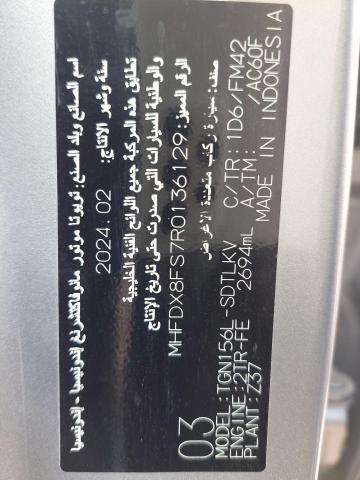 اسم الصانع وبلد الصنع: تويوتا موتور مانوفاكتشرنغ اندونيسيا - إندونيسيا
سنة وشهر الإنتاج: 2024.02
تطابق هذه المركبة جميع اللوائح الفنية الخليجية
والوطنية للسيارات التي صدرت حتى تاريخ الإنتاج
الرقم المميز: MHFDX8FS7R0136129
صنف: سيارة ركب متعددة الأغراض
03
MODEL: TGN156L-SDTLKV C/TR: 1D6/FM42
ENGINE: 2TR-FE 2694mL A/TM: /AC60F
PLANT: Z37 MADE IN INDONESIA